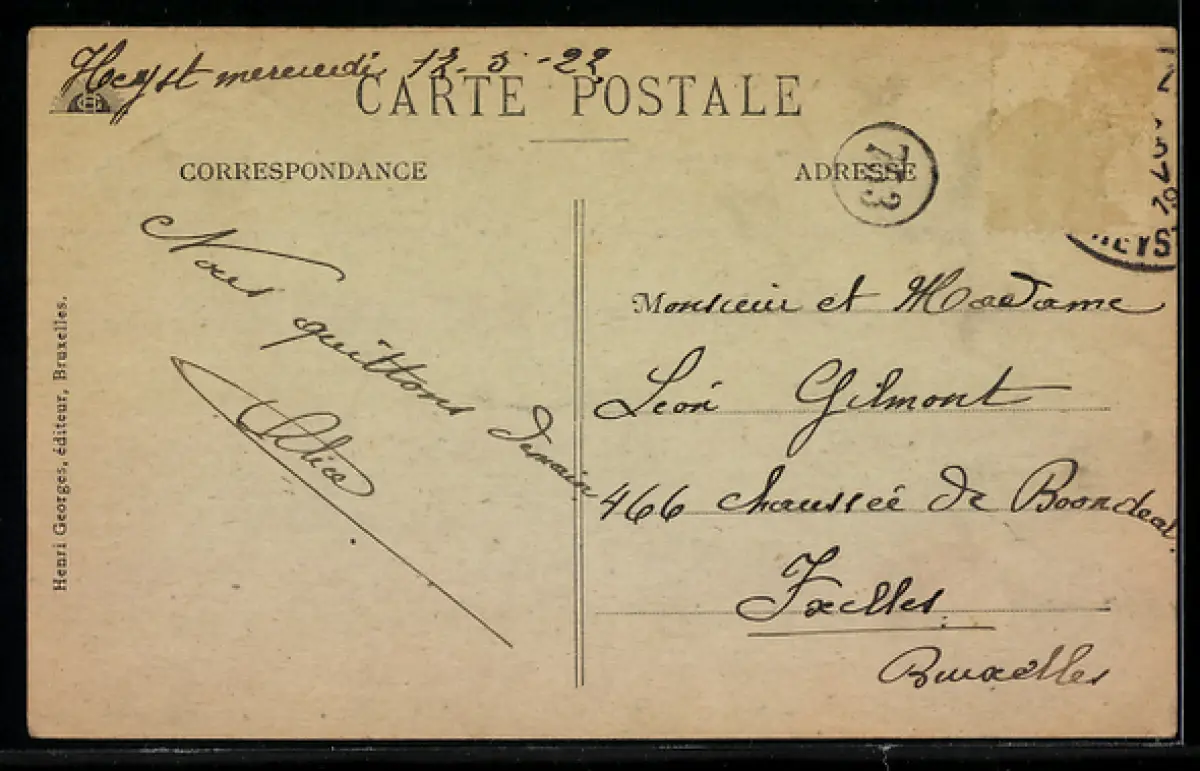 Heyst mercredi 13-5-22
CARTE POSTALE
CORRESPONDANCE
ADRESSE
Nous quittons demain
Alice
Monsieur et Madame
Léon Gilmont
466 Chaussée de Boondeal
Ixelles
Bruxelles
Henri Georges, éditeur, Bruxelles.